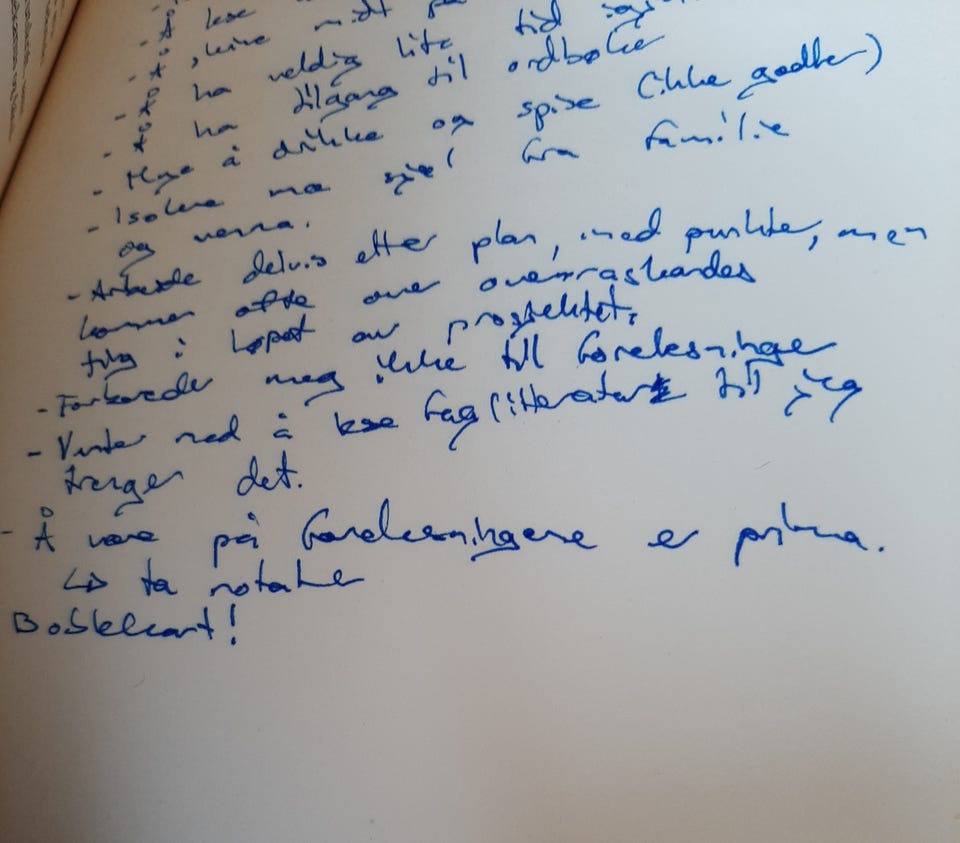 - Å lese
- Å skrive midt på
- Å ha veldig lite tid
- Å ha tilgang til ordbøker
- Mye å drikke og spise (ikke godter)
- Isolere meg sjøl fra familie
og venna.
- Arbeide delvis etter plan, med punkter, men
kommer ofte over overraskandes
ting i løpet av prosjektet.
- Forbereder meg ikke til forelesninger
- Venter med å lese faglitteratur til jeg
trenger det.
- Å være på forelesningene er prima.
↳ ta notater
Boblekart!